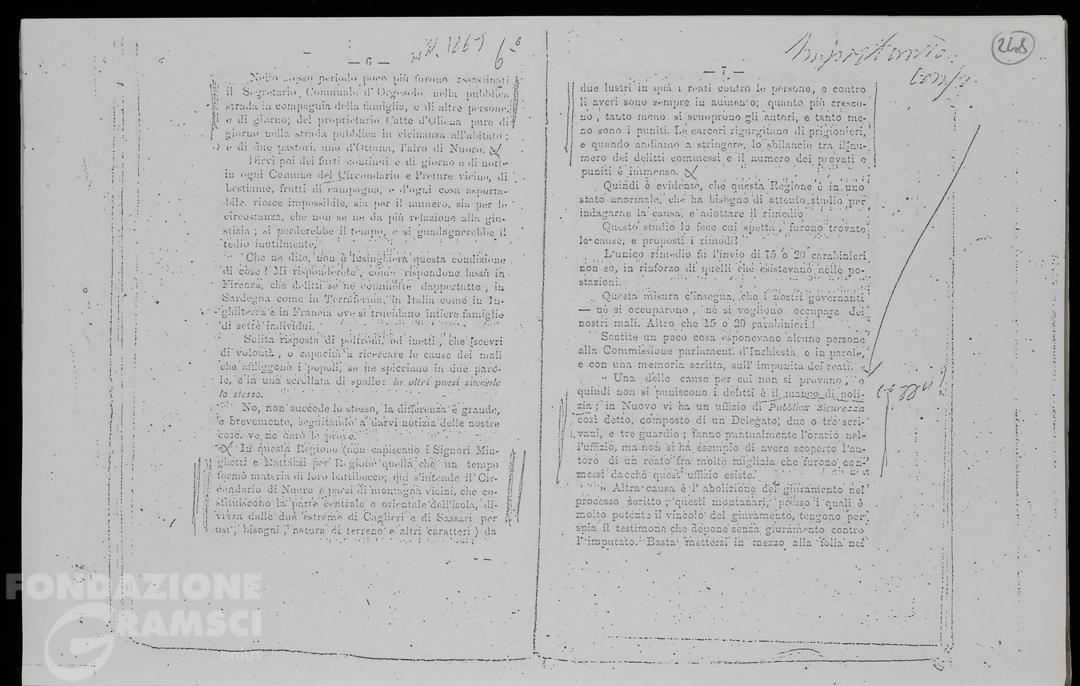 — 6 —
Nello stesso periodo poco più furono assassinati
il Segretario Comunale d'Orgosolo nella pubblica
strada in compagnia della famiglia, e di altre persone,
e di giorno; del proprietario Catte d'Oliena pure di
giorno nella strada pubblica in vicinanza all'abitato;
e di due pastori, uno d'Ottana, l'altro di Nuoro.
Dirvi poi dei furti continui e di giorno e di notte
in ogni Comune del Circondario e Preture vicino, di
bestiame, frutti di campagna, e d'ogni cosa asporta-
bile, riesce impossibile, sia per il numero, sia per le
circostanza, che non se ne da più relazione alla giu-
stizia; si perderebbe il tempo, e si guadagnerebbe il
tedio inutilmente.
Che ne dite, non è lusinghiera questa condizione
di cose? Mi risponderete, come rispondono lassù in
Firenze, che delitti se ne commette dappertutto, in
Sardegna come in Terraferma, in Italia come in In-
ghilterra e in Francia ove si trucidano intiere famiglie
di sette individui.
Solita risposta di poltroni, od inetti, che scevri
di volontà, o capacità a ricercare le cause dei mali
che affliggono i popoli, se ne spicciano in due paro-
le, e in una scrollata di spalle: in altri paesi succede
lo stesso.
No, non succede lo stesso, la differenza è grande,
e brevemente, seguitando a darvi notizia delle nostre
cose, ve ne darò le prove.
In questa Regione (non capiscano i Signori Min-
ghetti e Rattazzi per Regione quella che un tempo
formò materia di loro battibecco; qui s'intende il Cir-
condario di Nuoro e paesi di montagna vicini, che co-
stituiscono la parte centrale e orientale dell'isola, di-
versa dalle due estreme di Cagliari e di Sassari per
usi, bisogni, natura di terreno e altri caratteri) da
248
Importante
— 7 —
due lustri in quà i reati contro le persone, e contro
li averi sono sempre in aumento; quanto più cresco-
no, tanto meno si scuoprono gli autori, e tanto me-
no sono i puniti. Le carceri rigurgitano di prigionieri,
e quando andiamo a stringere, lo sbilancio tra il nu-
mero dei delitti commessi e il numero dei provati e
puniti è immenso.
Quindi è evidente, che questa Regione è in uno
stato anormale, che ha bisogno di attento studio per
indagarne la causa, e adottare il rimedio
Questo studio lo fece cui spetta, furono trovate
le cause, e proposti i rimedi!
L'unico rimedio fu l'invio di 15 o 20 carabinieri
non so, in rinforzo di quelli che esistevano nelle po-
stazioni.
Questa misura c'insegna, che i nostri governanti
— nè si occuparono, nè si vogliono occupare dei
nostri mali. Altro che 15 o 20 carabinieri!
Sentite un poco cosa esponevano alcune persone
alla Commissione parlament. d'Inchiesta o in parole,
e con una memoria scritta, sull' impunita dei reati.
" Una delle cause per cui non si provano, e
quindi non si puniscono i delitti è il manco di poli-
zia; in Nuovo vi ha un uffizio di Pubblica Sicurezza
così detto, composto di un Delegato, due o tre scri-
vani, e tre guardie; fanno puntualmente l'orario nel-
l'uffizio, ma non si ha esempio di avere scoperto l'au-
tore di un reato fra molte migliaia che furono com-
messi dacchè quest' uffizio esiste.
" Altra causa è l' abolizione del giuramento nel
processo scritto; questi montanari, presso i quali è
molto potente il vincolo del giuramento, tengono per
spia il testimone che depone senza giuramento contro
l'imputato. Basta mettersi in mezzo alla folla nei
FONDAZIONE
GRAMSCI
onlus